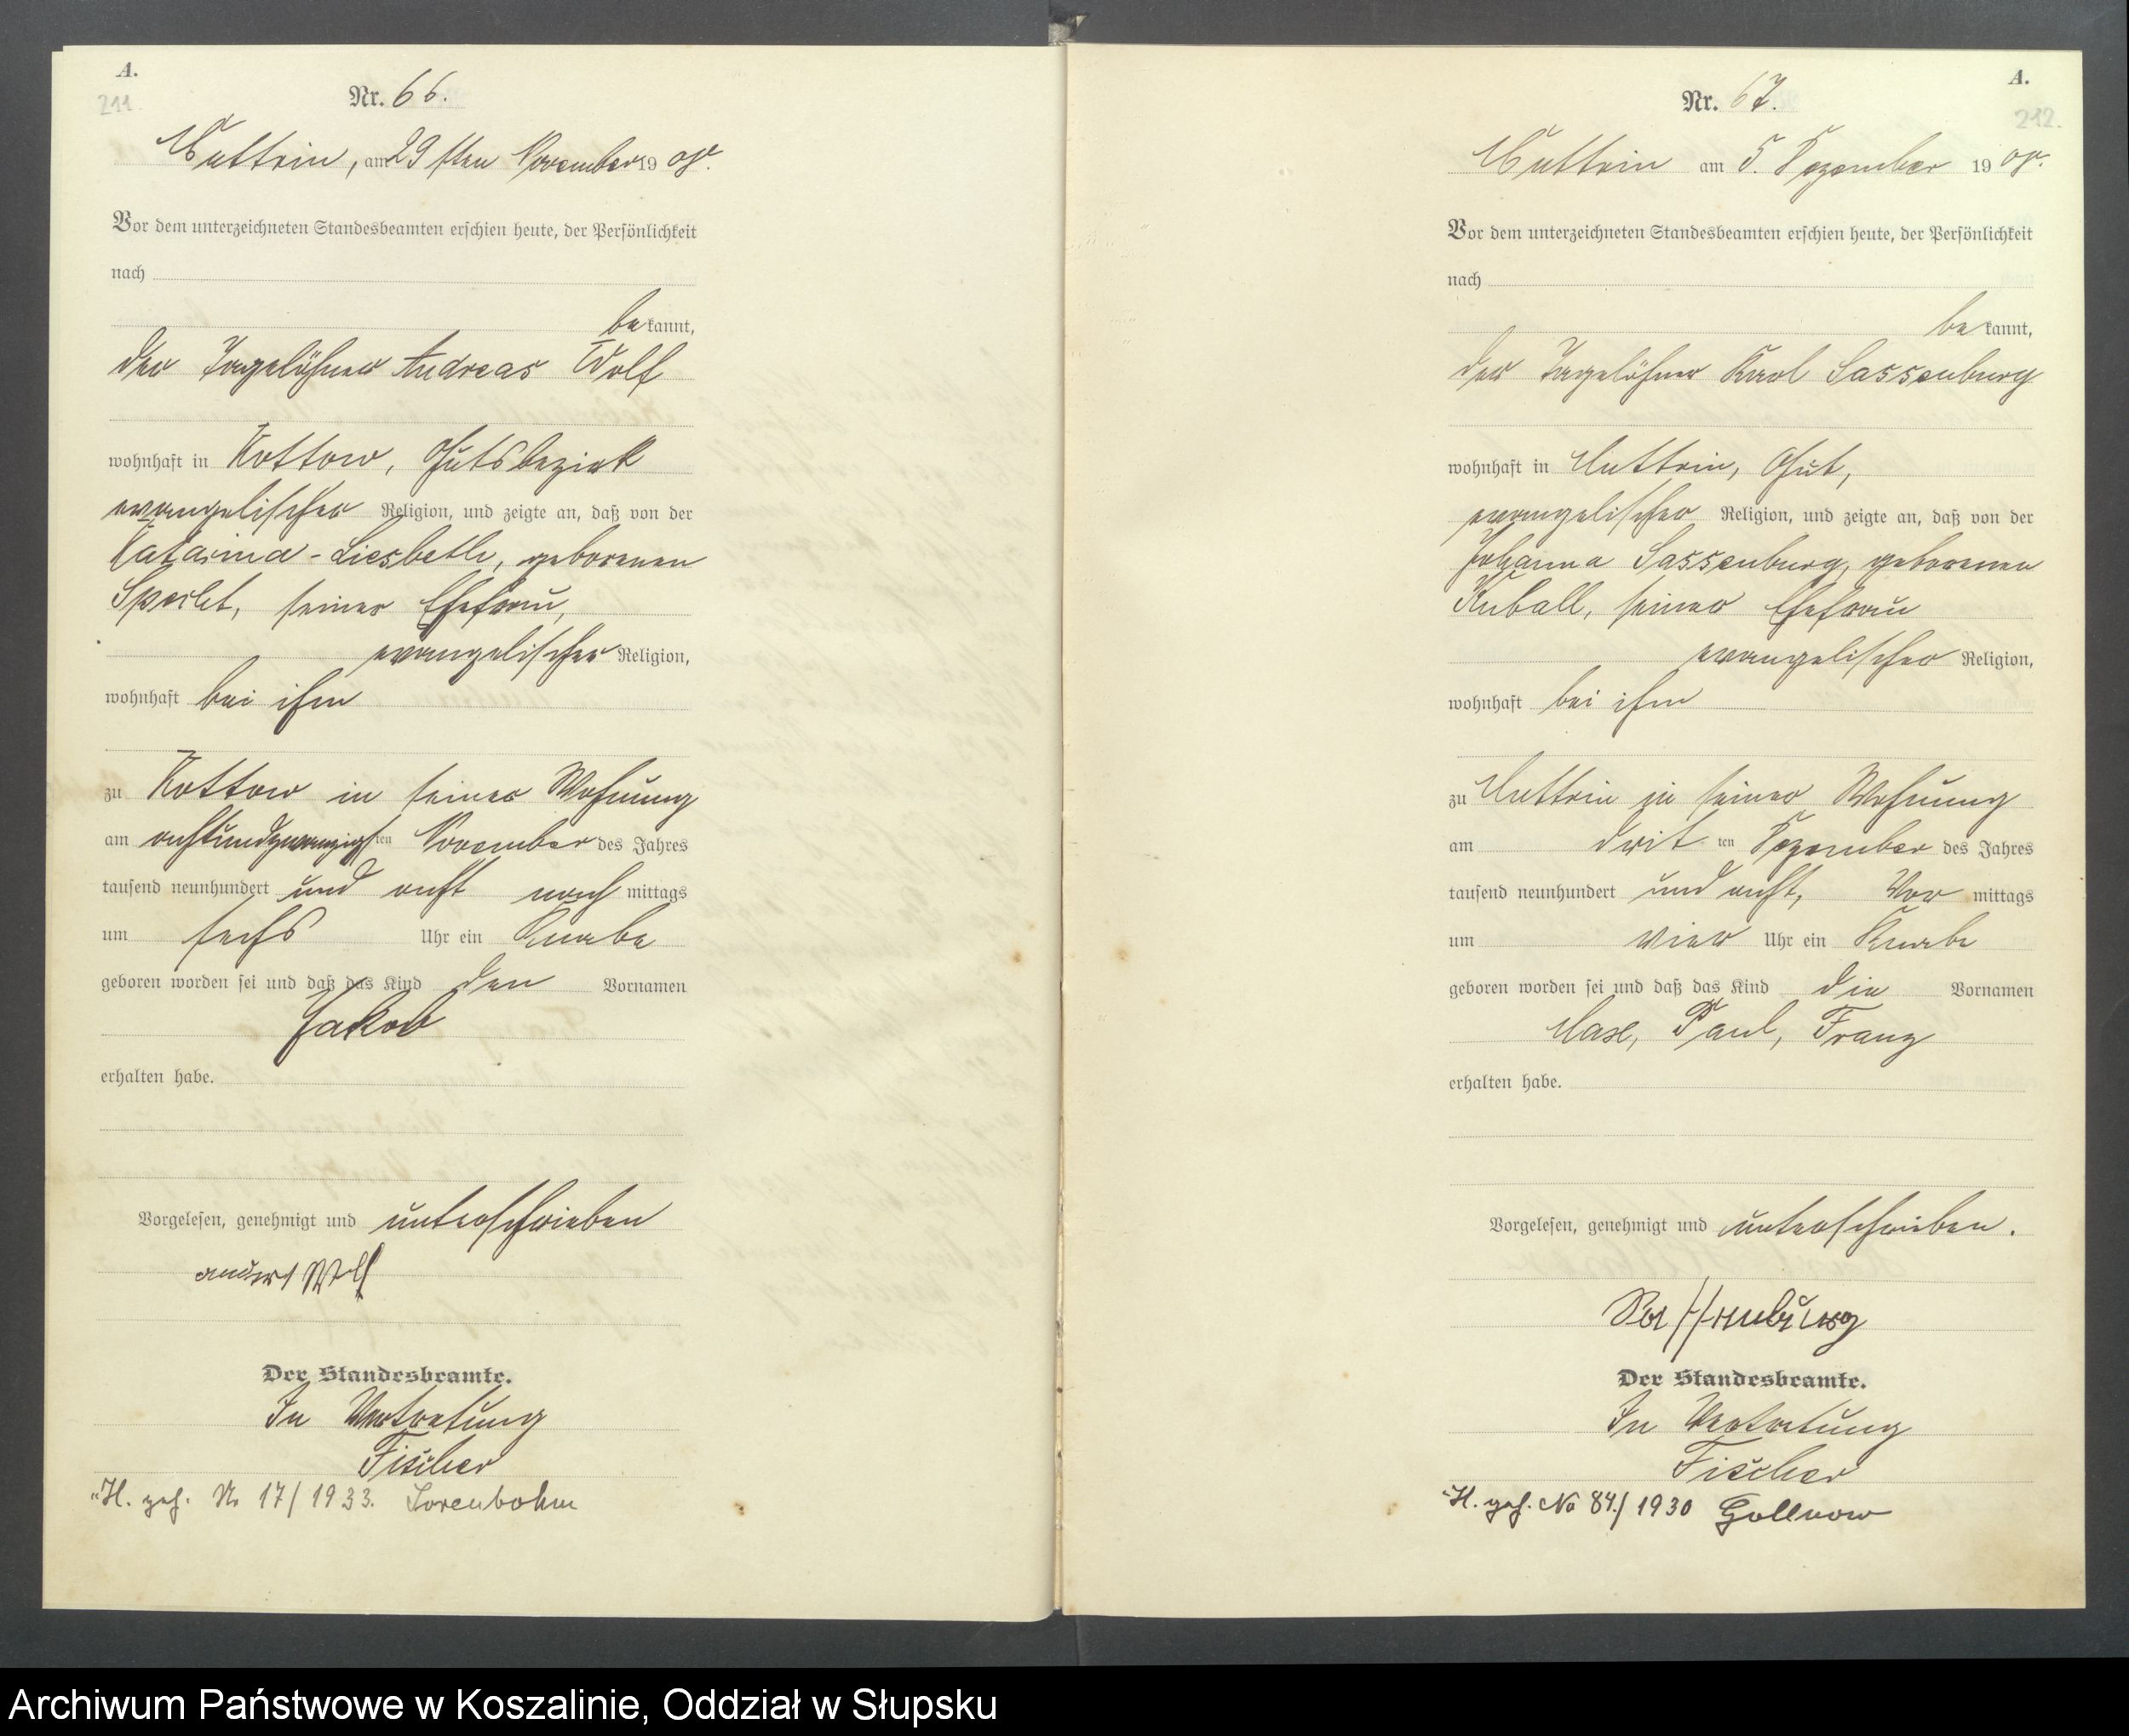 A.
211
Nr. 66.
Muttrin, am 29sten November 1908.
Vor dem unterzeichneten Standesbeamten erschien heute, der Persönlichkeit
nach
bekannt,
der Tagelöhner Andreas Wolf
wohnhaft in Kottow, Gutsbezirk
evangelischer Religion, und zeigte an, daß von der
Katarina-Liesbeth, geborenen
Specht, seiner Ehefrau,
evangelischer Religion,
wohnhaft bei ihm
zu Kottow in seiner Wohnung
am achtundzwanzigsten November des Jahres
tausend neunhundert und acht nachmittags
um sechs Uhr ein Knabe
geboren worden sei und daß das Kind den Vornamen
Jakob
erhalten habe.
Vorgelesen, genehmigt und unterschrieben
Wolf
Der Standesbeamte.
In Vertretung
Fischer
H. geh. No 17/1933.
A.
212.
Nr. 67.
Muttrin am 5. Dezember 1908.
Vor dem unterzeichneten Standesbeamten erschien heute, der Persönlichkeit
nach
bekannt,
der Tagelöhner Karl Sassenburg
wohnhaft in Muttrin, Gut,
evangelischer Religion, und zeigte an, daß von der
Johanna Sassenburg, geborenen
Kuball, seiner Ehefrau
evangelischer Religion,
wohnhaft bei ihm
zu Muttrin in seiner Wohnung
am dritten Dezember des Jahres
tausend neunhundert und acht, Vormittags
um vier Uhr ein Knabe
geboren worden sei und daß das Kind die Vornamen
Max, Paul, Franz
erhalten habe.
Vorgelesen, genehmigt und unterschrieben.
Sassenburg
Der Standesbeamte.
In Vertretung
Fischer
H. geh. No 84./1930 Gollnow
Archiwum Państwowe w Koszalinie, Oddział w Słupsku